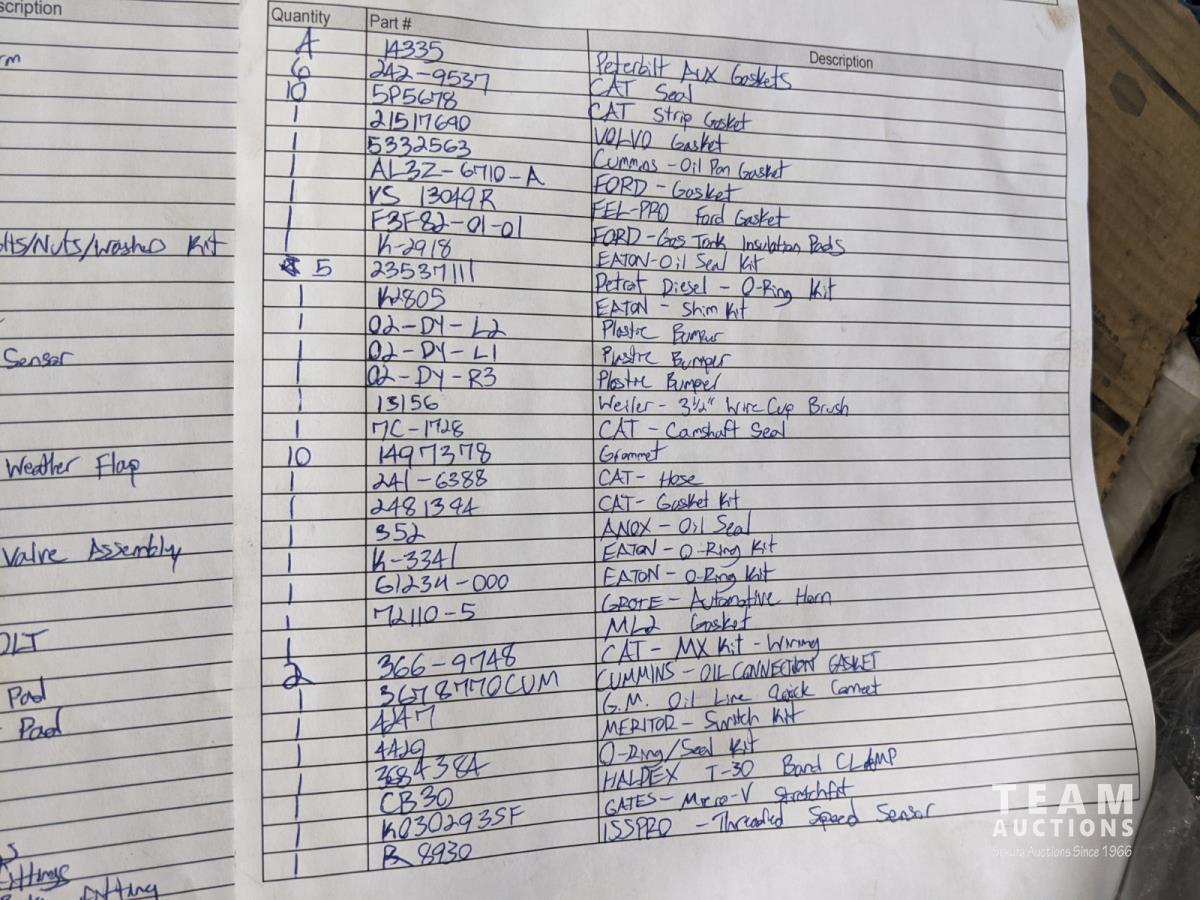 scription
rm
olts/Nuts/Washed Kit
Sensor
Weather Flap
Valve Assembly
OLT
Pad
Pad
Fittings
Fitting
Quantity Part # Description
4 14335 Peterbilt AUX Gaskets
6 242-9537 CAT Seal
10 5P5678 CAT Strip Gasket
1 21517640 VOLVO Gasket
1 5332563 Cummins - Oil Pan Gasket
1 AL3Z-6710-A FORD - Gasket
1 VS 13049R FEL-PRO Ford Gasket
1 F3F82-01-01 FORD - Gas Tank Insulation Pads
1 K-2918 EATON-Oil Seal Kit
5 23537111 Detroit Diesel - O-Ring Kit
1 K2805 EATON - Shim Kit
1 02-DY-L2 Plastic Bumper
1 02-DY-L1 Plastic Bumper
1 02-DY-R3 Plastic Bumper
1 13156 Weiler - 3½" Wire Cup Brush
1 7C-1728 CAT - Camshaft Seal
10 1497378 Grommet
1 241-6388 CAT - Hose
1 2481394 CAT - Gasket Kit
1 352 ANOX - Oil Seal
1 K-3341 EATON - O-Ring Kit
1 61234-000 EATON - O-Ring Kit
1 72110-5 GROTE - Automotive Horn
1 ML2 Gasket
1 366-9748 CAT - MX Kit - Wiring
2 3678770CUM CUMMINS - OIL CONNECTION GASKET
1 4247 G.M. Oil Line Quick Connect
1 4429 MERITOR - Switch Kit
1 3684384 O-Ring/Seal Kit
1 CB30 HALDEX T-30 Band CLAMP
1 K030293SF GATES - Micro-V Stretchfit
1 R 8930 ISSPRO - Threaded Speed Sensor
TEAM
AUCTIONS
Sekura Auctions Since 1966